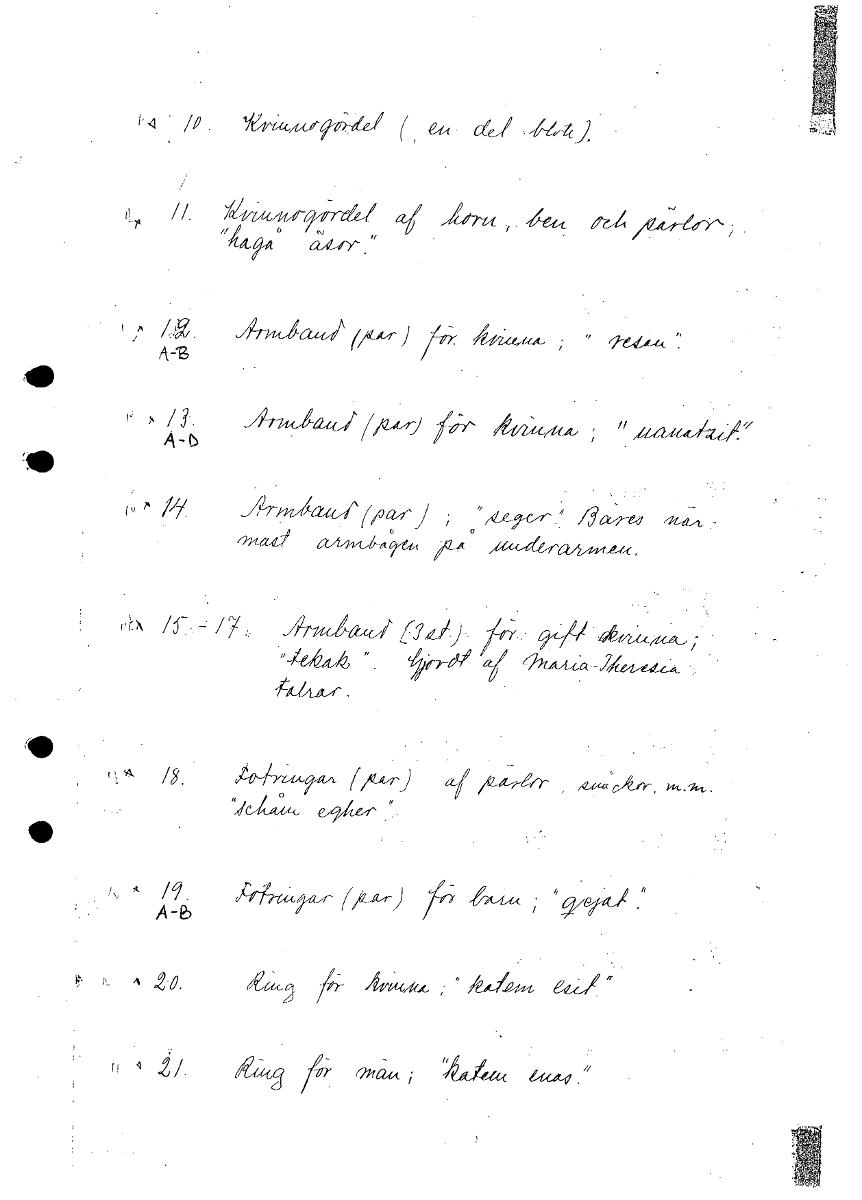 10. Kvinnogördel (en del blott).
11. Kvinnogördel af horn, ben och pärlor;
"haga° äsor."
12. Armband (par) för kvinna; "resan".
A-B
13. Armband (par) för kvinna; "nanatzit."
A-D
14. Armband (par); "seger". Bäres när-
mast armbågen på underarmen.
15.-17. Armband (3 st.) för gift kvinna;
"tekak". Gjordt af Maria-Theresia
talrar.
18. Fotringar (par) af pärlor, snäckor, m.m.
"schåm egher".
19. Fotringar (par) för barn; "gejat".
A-B
20. Ring för kvinna; "katem esit"
21. Ring för män; "katem enas."